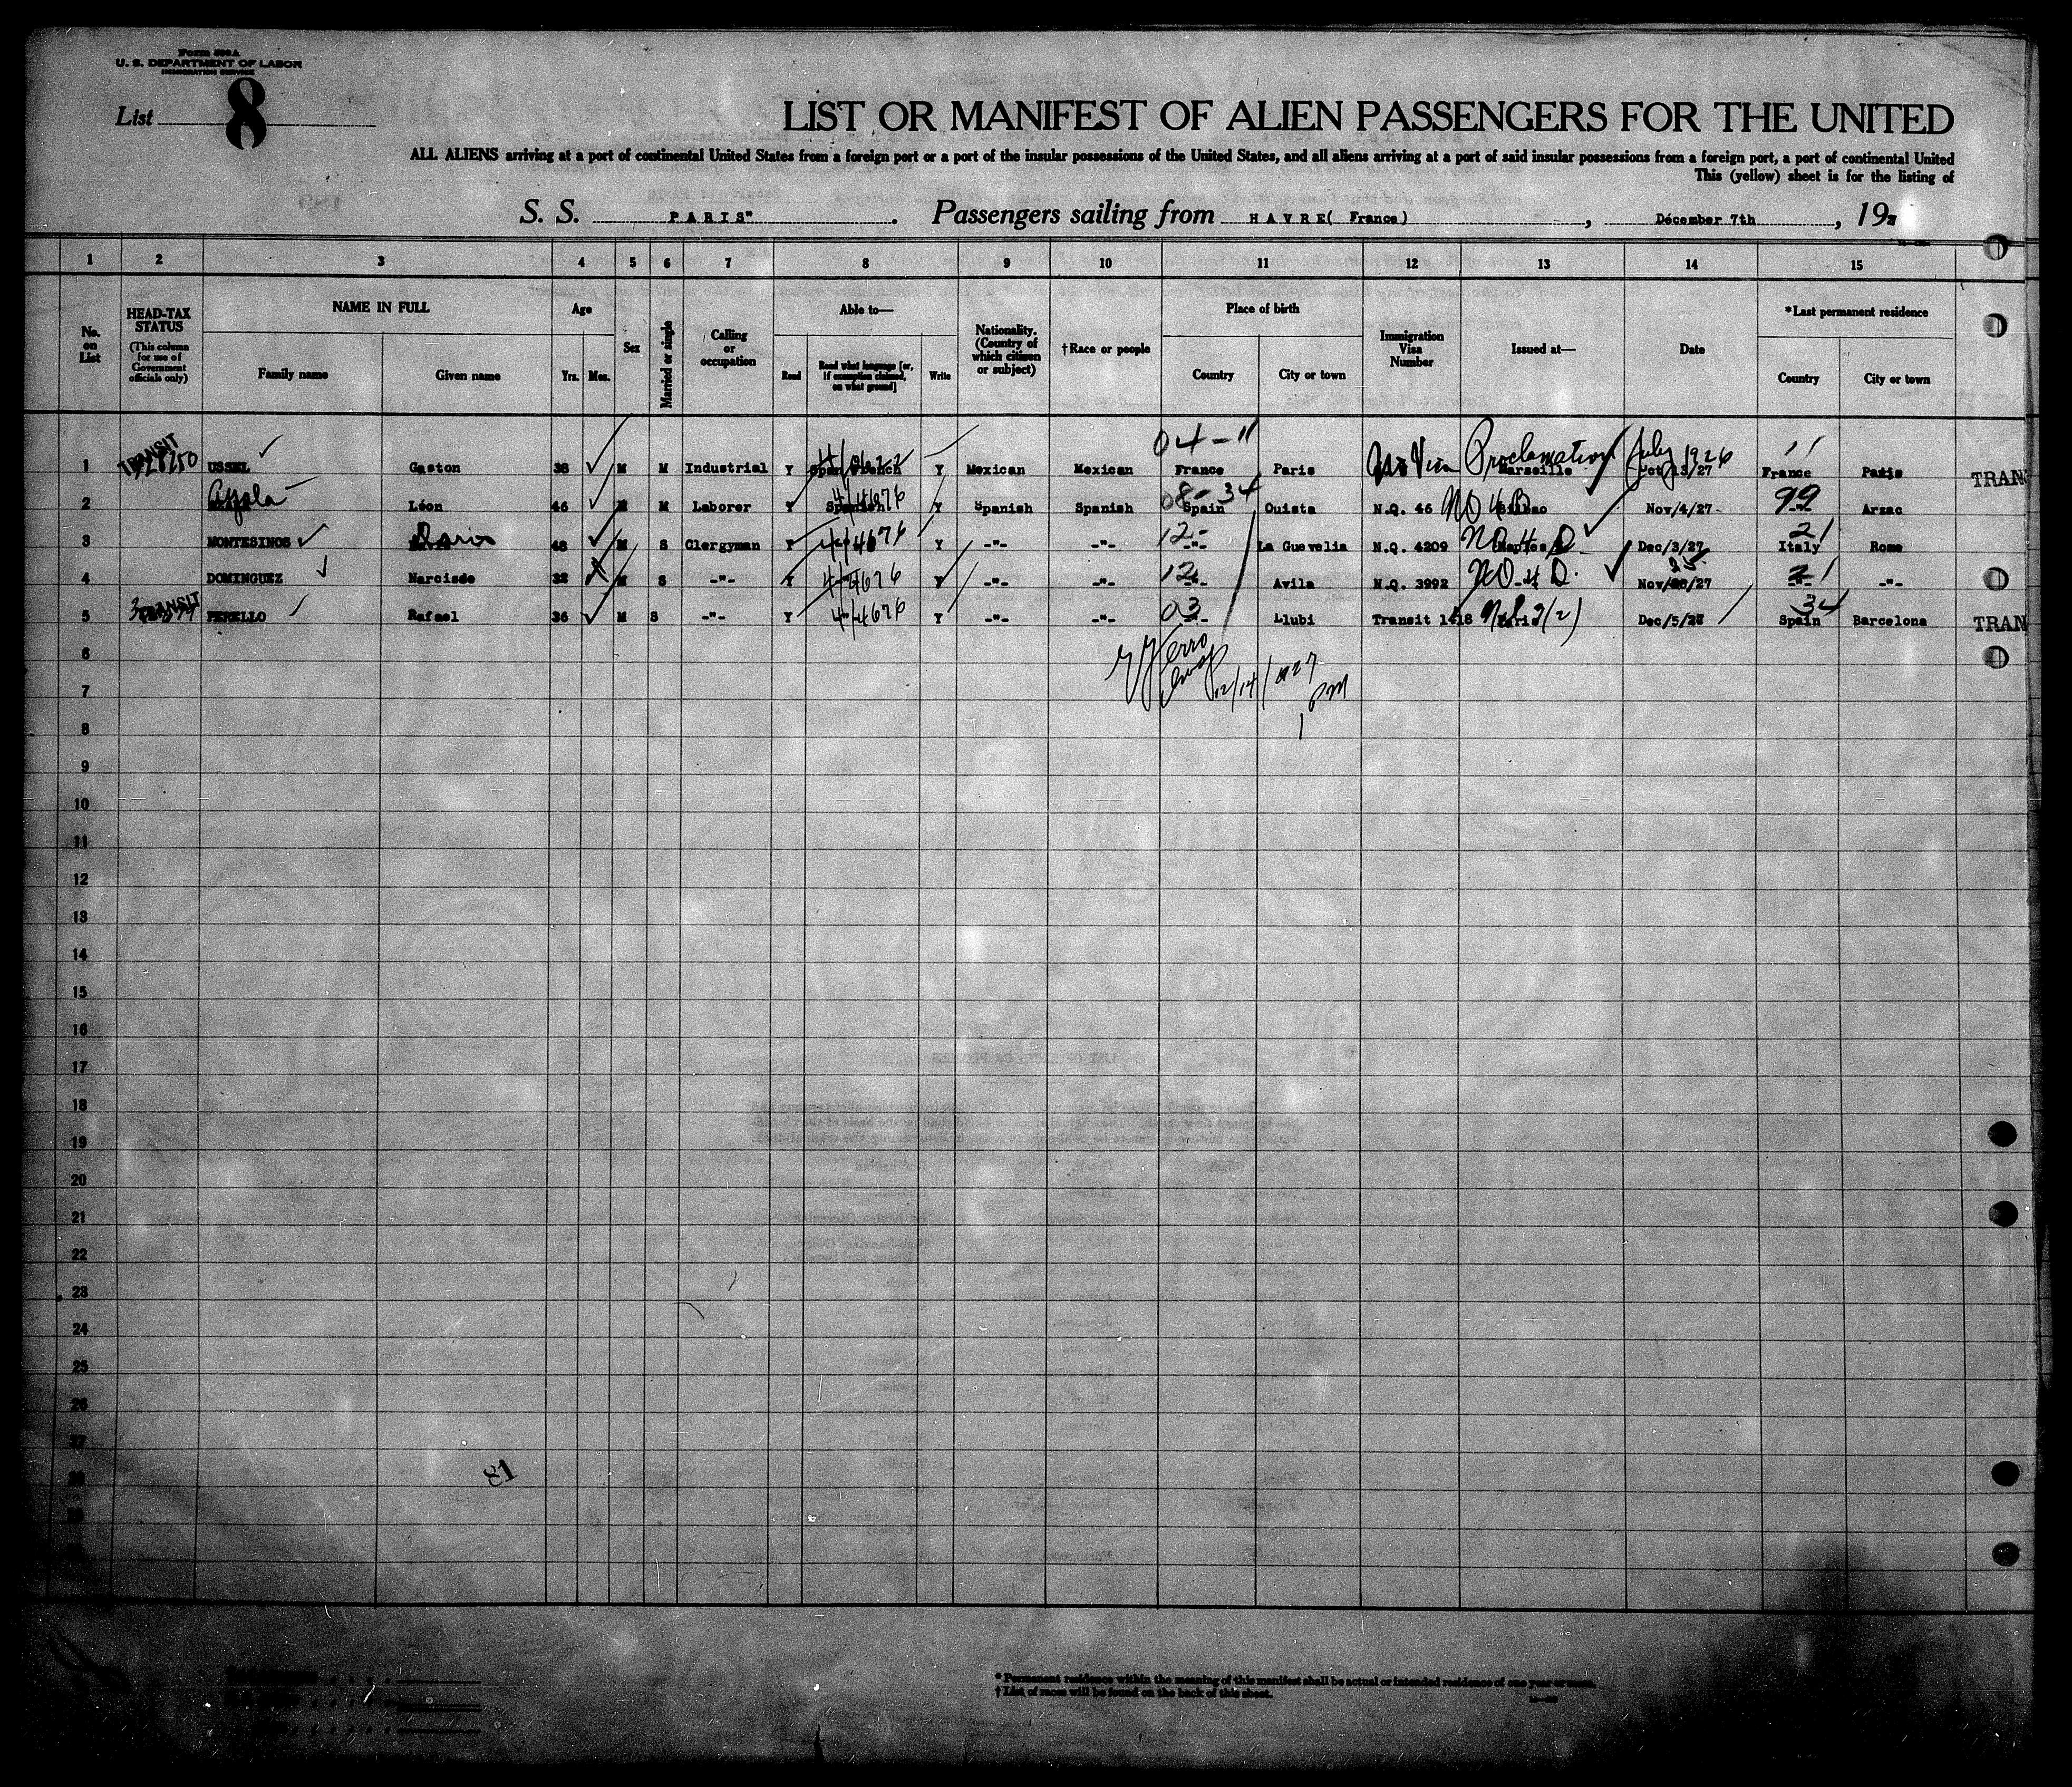 Form 500A
U. S. DEPARTMENT OF LABOR
IMMIGRATION SERVICE
List 8
LIST OR MANIFEST OF ALIEN PASSENGERS FOR THE UNITED
ALL ALIENS arriving at a port of continental United States from a foreign port or a port of the insular possessions of the United States, and all aliens arriving at a port of said insular possessions from a foreign port, a port of continental United
This (yellow) sheet is for the listing of
S. S. PARIS" . Passengers sailing from HAVRE( France) , Décember 7th , 19
1 2 3 4 5 6 7 8 9 10 11 12 13 14 15
No. on List
HEAD-TAX STATUS (This column for use of Government officials only)
NAME IN FULL
Family name Given name
Age
Yrs. Mos.
Sex
Married or single
Calling or occupation
Able to—
Read Read what language [or, if exemption claimed, on what ground] Write
Nationality. (Country of which citizen or subject)
†Race or people
Place of birth
Country City or town
Immigration Visa Number
Issued at—
Date
*Last permanent residence
Country City or town
04-11
1 TRANSIT USSEL Gaston 38 M M Industrial Y Y Mexican Mexican France Paris Proclamation Marseille July 1926 Oct/13/27 France Paris TRAN
2 Ayala Léon 46 M M Laborer Y Spanish 4/4676 Y Spanish Spanish 08-34 Spain Ouista N.Q. 46 Bilbao Nov/4/27- 99 Arzac
3 MONTESINOS 48 M S Clergyman Y 4-4676 Y -"- -"- 12- La Guevelia N.Q. 4209 Naples Dec/3/27 21 Italy Rome
4 DOMINGUEZ Narcisde 32 M S -"- Y 4-4676 Y -"- -"- 12 Avila N.Q. 3992 NO 4 D. Nov/ /27 21 -"- -"-
5 TRANSIT PERELLO Rafael 36 M S -"- Y 4-4676 Y -"- -"- 03 Llubi Transit 1418 Paris 3(2) Dec/5/27 34 Spain Barcelona TRAN
6
12/14/1927
7
1 PM
8
9
10
11
12
13
14
15
16
17
18
19
20
21
22
23
24
25
26
27
28
29
81
* Permanent residence within the meaning of this manifest shall be actual or intended residence of one year or more.
† List of races will be found on the back of this sheet.